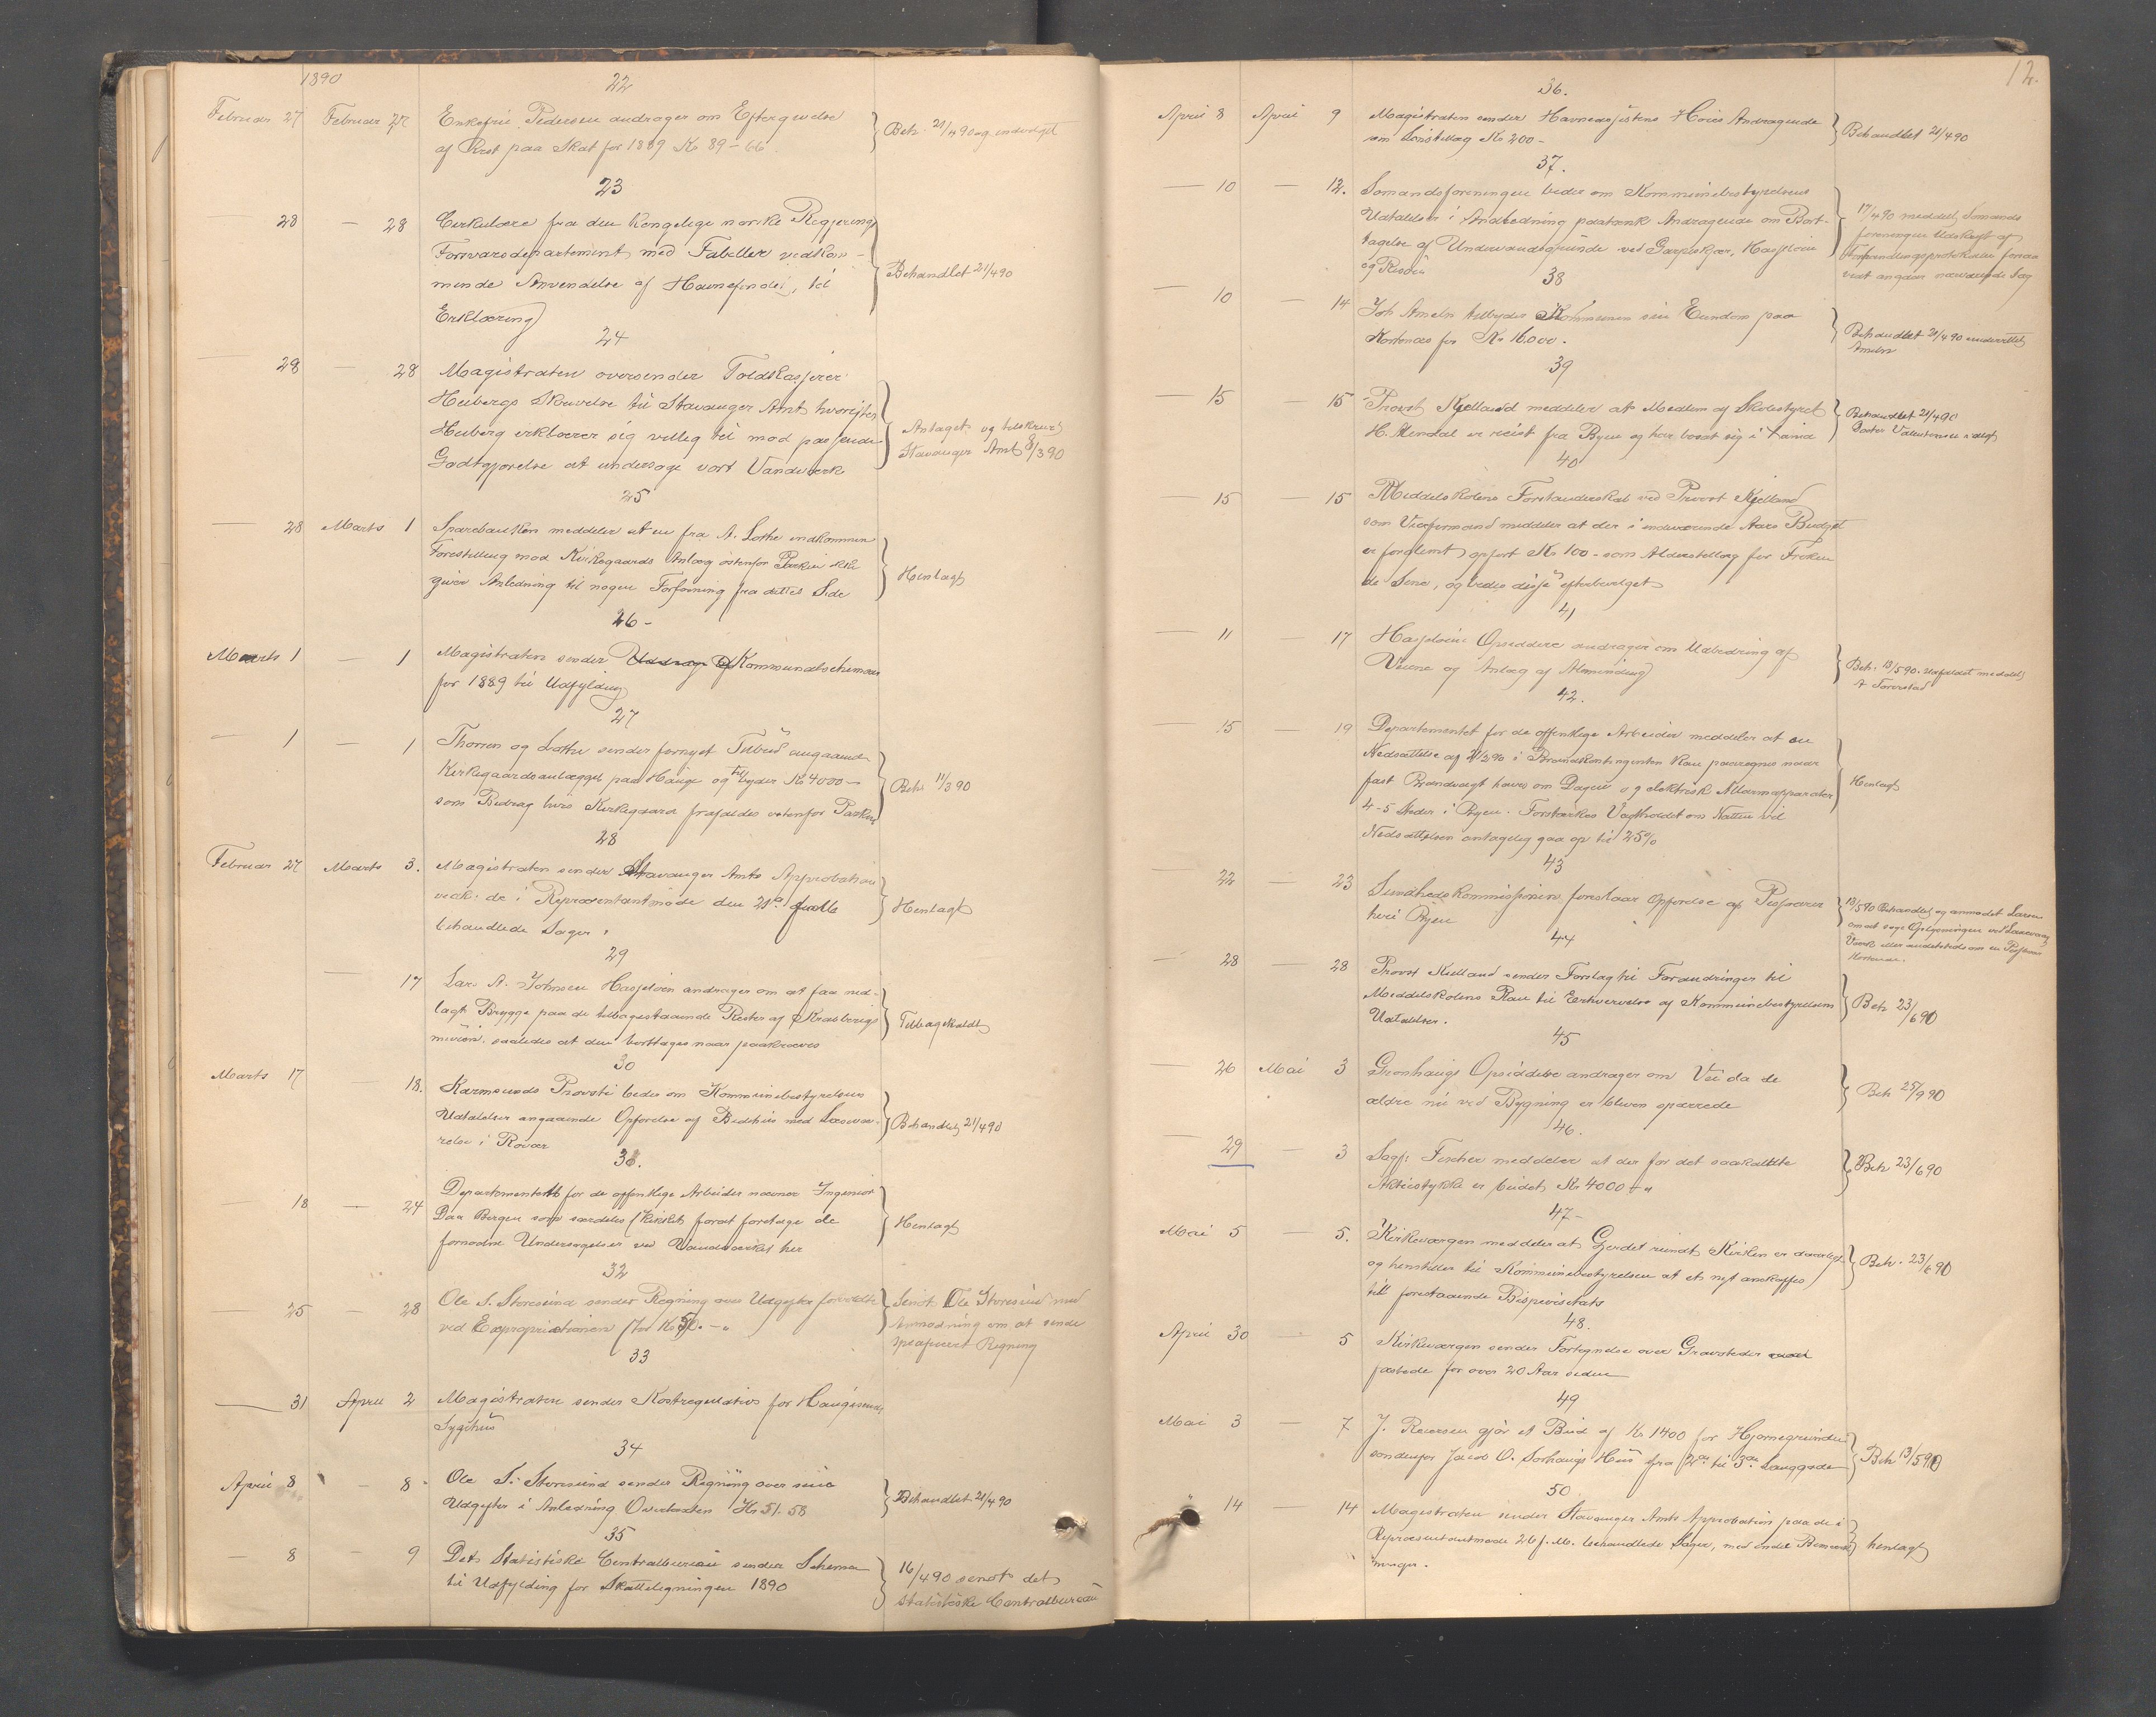 1890
22
Februar 27 Februar 27 Enkefru Pedersen andrager om Eftergivelse
af Rest paa Skat for 1889 Kr 89-66
Beh. 21/4 90 og indvilget
23
28 — 28 Cirkulære fra den Kongelige norske Regjerings
Forsvarsdepartement med Tabeller vedkom-
mende Anvendelse af Havnefondet, til
Erklæring
Behandlet 21/4 90
24
28 — 28 Magistraten oversender Toldkasserer
Heibergs Skrivelse til Stavanger Amt hvorefter
Heiberg erklærer sig villig til mod passende
Godtgjørelse at undersøge vort Vandværk
Antaget og tilskrevet
Stavanger Amt 8/3 90
25
28 Marts 1 Sparebanken meddeler at en fra A. Lothe indkommen
Forestilling mod Kirkegaards Anlæg østenfor Parken ikke
giver Anledning til nogen Forføining fra dettes Side
Henlagt
26-
Marts 1 — 1 Magistraten sender Uddrag af Kommunalschemaer
for 1889 til Udfylding
27
1 — 1 Thorsen og Lothe sender fornyet Tilbud angaaende
Kirkegaardsanlægget paa Hauge og tilbyder Kr 4000—
som Bidrag hvis Kirkegaard frafaldes østenfor Parken
Beh 11/3 90
28
Februar 27 Marts 3. Magistraten sender Stavanger Amts Approbation
vedk: de i Repræsentantmøde den 21de
behandlede Sager.
Henlagt
29
17 Lars A. Johnsen Hasseløen andrager om at faa ned-
lagt Brygge paa de tilbagestaaende Rester af Krabbergs
saaledes at den borttages naar paakræves
Tilbagekaldt
30
Marts 17 — 18. Karmsunds Provsti bedes om Kommunebestyrelsens
Udtalelser angaaende Opførelse af Bedehus med Læsevæ-
relse i Røvær
Behandlet 21/4 90
31.
18 — 24 Departementet for de offentlige Arbeider nævner Ingeniør
Daa Bergen som særdeles skikket forat foretage de
fornødne Undersøgelser ved Vandværket her
Henlagt
32
25 — 28 Ole S. Storesund sender Regning over Udgifter forvoldte
ved Expropriationen stor Kr 50.—
Sendt Ole Storesund med
Anmodning om at sende
spesificeret Regning
33
31 April 2 Magistraten sender Kostregulativ for Haugesunds
Sygehus
34
April 8 — 8 Ole S. Storesund sender Regning over sine
Udgifter i Anledning Overtaxten Kr 51.58
Behandlet 21/4 90
35
8 — 9 Det Statistiske Centralbureau sender Schema
til Udfylding for Skatteligningen 1890
16/4 90 sendt det
statistiske Centralbureau
12.
36.
April 8 April 9 Magistraten sender Havnefogdens Andragende
om Lønstillæg Kr 200-
Behandlet 21/4 90
37.
10 — 12. Sømandsforeningen beder om Kommunebestyrelsens
Udtalelse i Anledning paatænkt Andragende om Bort-
tagelse af Undervandsgrunde ved Garpeskjær, Hasseløen
og Risøen
17/4 90 meddelt Sømands
foreningen Udskrift af
Forhandlingsprotokollen forsaa
vidt angaar nærværende Sag
38
10 — 14 Joh Ameln tilbyder Kommunen sin Eiendom paa
Kortenæs for Kr 16.000.
Behandlet 21/4 90 underrettet
Ameln
39
15 — 15 Provst Kjelland meddeler at Medlem af Skolestyret
H. Mendal er reist fra Byen og har bosat sig i
Behandlet 21/4 90
Doctor Valentinsen valgt
40
15 — 15 Middelskolens Forstanderskab ved Provst Kjelland
som Viceformand meddeler at der i indeværende Aars Budget
er forglemt opført Kr 100- som Alderstillæg for Frøken
de Seue, og bedes disse efterbevilget
41
11 — 17 Hasseløens Opsiddere andrager om Udbedring af
Veiene og Anlæg af Almindning
Beh. 13/5 90. Udfaldet meddelt
A Torvestad
42.
15 — 19 Departementet for de offentlige Arbeider meddeler at en
Nedsættelse af i Brandkontingenten kan paaregnes naar
fast Brandvagt haves om Dagen og elektrisk Allarmapparater
4-5 Steder i Byen. Forstærkes Vagtholdet om Natten vil
Nedsættelsen antagelig gaa op til 25%
Henlagt
43
22 — 23 Sundhedskommissionen foreslaar Opførelse af Pissoirer
her i Byen
13/5 90 Behandlet og anmodet Larsen
44
28 — 28 Provst Kielland sender Forslag til Forandringer til
Middelskolens Plan til Erhvervelse af Kommunebestyrelsens
Udtalelser.
Beh 23/6 90
45
26 Mai 3 Grønhaugs Opsiddere andrager om Vei da de
ældre nu ved Bygning er bleven spærrede
Beh 25/9 90
46.
29 — 3 Sagf: Fischer meddeler at der for det saakaldte
Aktiestykke er budet Kr 4000.—
Beh 23/6 90
47-
Mai 5 — 5. Kirkeværgen meddeler at Gjerdet rundt Kirken er daarligt
og henstiller til Kommunebestyrelsen at et nyt anskaffes
till forestaaende Bispevisitats
Beh. 23/6 90
48.
April 30 — 5 Kirkeværgen sender Fortegnelse over Gravsteder
fæstede for over 20 Aar siden
49
Mai 3 — 7 J. Reiersen gjør et Bud af Kr 1400 for Hjørnegrunden
søndenfor Jacob O. Sørhaugs Hus fra 2den til 3die Langgade
Beh 13/5 90
50.
" 14 — 14 Magistraten sender Stavanger Amts Approbation paa de i
Repræsentantmøde 26 f. M. behandlede Sager, med endel Bemærk-
ninger.
henlagt